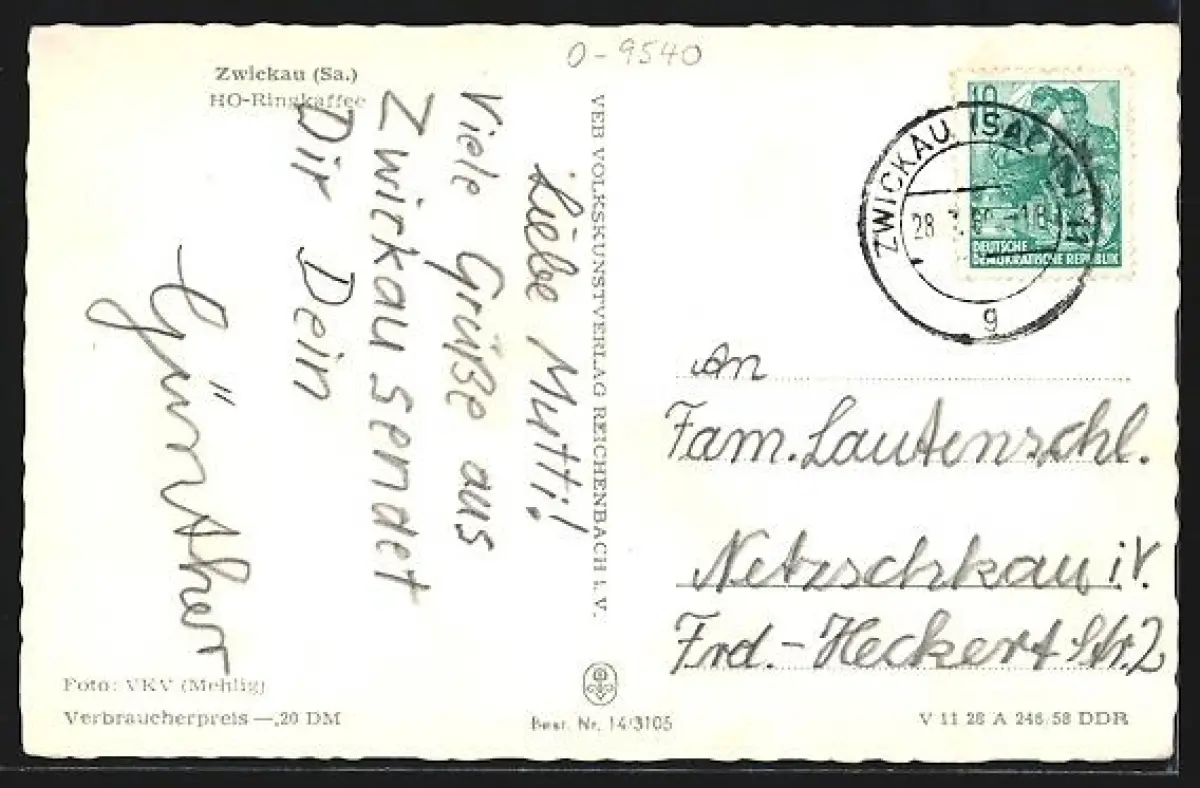 O-9540
Zwickau (Sa.)
HO-Ringkaffee
Liebe Mutti!
Viele Grüße aus
Zwickau sendet
Dir Dein
Günther
VEB VOLKSKUNSTVERLAG REICHENBACH i. V.
10
DEUTSCHE
DEMOKRATISCHE REPUBLIK
ZWICKAU (SACHS) 11
28
g
An
Fam. Lautenschl.
Netzschkau i. V.
Frd.-Heckert Str. 2
Foto: VKV (Mehlig)
Verbraucherpreis —,20 DM
Best. Nr. 14/3105
V 11 28 A 246/58 DDR